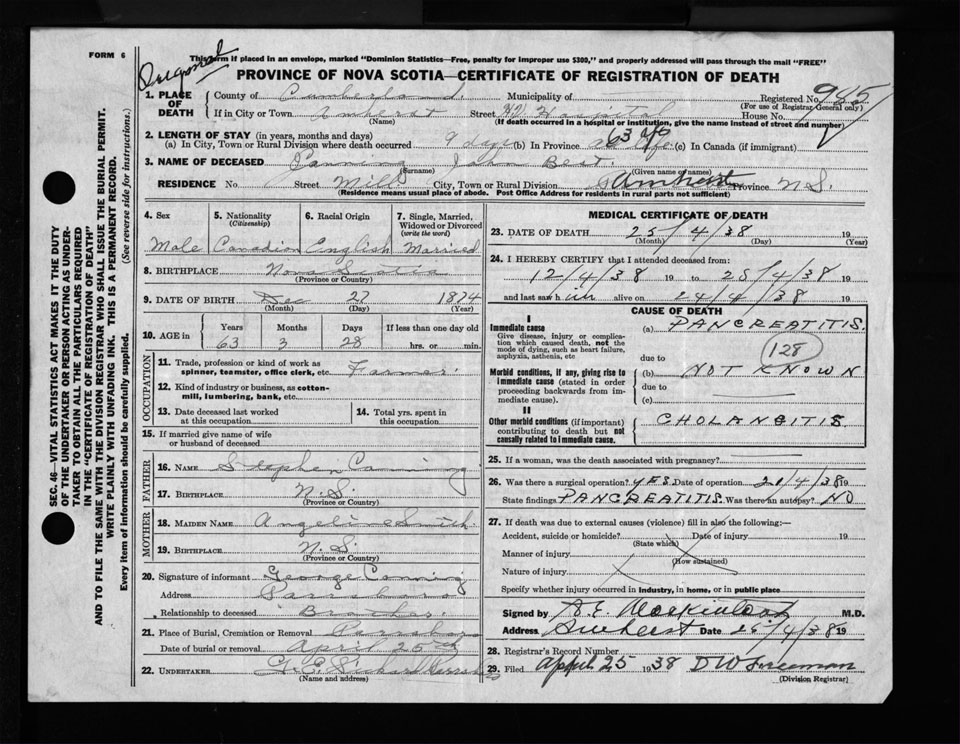 FORM 6
Original
This form if placed in an envelope, marked "Dominion Statistics—Free, penalty for improper use $300," and properly addressed will pass through the mail "FREE"
PROVINCE OF NOVA SCOTIA—CERTIFICATE OF REGISTRATION OF DEATH
1. PLACE OF DEATH County of Cumberland Municipality of Registered No. 945
(For use of Registrar General only)
If in City or Town Amherst Street Hospital House No.
(Name) (If death occurred in a hospital or institution, give the name instead of street and number)
2. LENGTH OF STAY (in years, months and days) 63 yrs
(a) In City, Town or Rural Division where death occurred 9 days (b) In Province life (c) In Canada (if immigrant)
3. NAME OF DECEASED Canning John Bert.
(Surname) (Given name or names)
RESIDENCE No. Street Mill City, Town or Rural Division Amherst Province N.S.
(Residence means usual place of abode. Post Office Address for residents in rural parts not sufficient)
4. Sex Male
5. Nationality (Citizenship) Canadian
6. Racial Origin English
7. Single, Married, Widowed or Divorced (write the word) Married
8. BIRTHPLACE Nova Scotia
(Province or Country)
9. DATE OF BIRTH Dec 27 1874
(Month) (Day) (Year)
10. AGE in Years 63 Months 3 Days 28 If less than one day old hrs. or min.
OCCUPATION
11. Trade, profession or kind of work as spinner, teamster, office clerk, etc. Farmer
12. Kind of industry or business, as cotton-mill, lumbering, bank, etc.
13. Date deceased last worked at this occupation
14. Total yrs. spent in this occupation.
15. If married give name of wife or husband of deceased
FATHER
16. NAME Stephen Canning
17. BIRTHPLACE N.S.
(Province or Country)
MOTHER
18. MAIDEN NAME Angeline Smith.
19. BIRTHPLACE N.S.
(Province or Country)
20. Signature of informant George Canning
Address Parrsboro
Relationship to deceased Brother.
21. Place of Burial, Cremation or Removal Parrsboro
Date of burial or removal April 26th
22. UNDERTAKER
(Name and address)
MEDICAL CERTIFICATE OF DEATH
23. DATE OF DEATH 25/4/38 19
(Month) (Day) (Year)
24. I HEREBY CERTIFY that I attended deceased from:
12/4/38 19 to 25/4/38 19
and last saw him alive on 24/4/38 19
CAUSE OF DEATH
I
Immediate cause (a) PANCREATITIS.
Give disease, injury or complication which caused death, not the mode of dying, such as heart failure, asphyxia, asthenia, etc
128
due to
Morbid conditions, if any, giving rise to immediate cause (stated in order proceeding backwards from immediate cause). (b) NOT KNOWN
due to
(c)
II
Other morbid conditions (if important) contributing to death but not causally related to immediate cause. CHOLANGITIS.
25. If a woman, was the death associated with pregnancy?
26. Was there a surgical operation? YES. Date of operation 21/4/38 19
State findings PANCREATITIS. Was there an autopsy? NO
27. If death was due to external causes (violence) fill in also the following:—
Accident, suicide or homicide? Date of injury 19
(State which)
Manner of injury
(How sustained)
Nature of injury
Specify whether injury occurred in industry, in home, or in public place
Signed by A.E. Mackintosh M.D.
Address Amherst Date 25/4/38 19
28. Registrar's Record Number
29. Filed April 25 1938 D W Freeman
(Division Registrar)
SEC. 46—VITAL STATISTICS ACT MAKES IT THE DUTY
OF THE UNDERTAKER OR PERSON ACTING AS UNDER-
TAKER TO OBTAIN ALL THE PARTICULARS REQUIRED
IN THE "CERTIFICATE OF REGISTRATION OF DEATH"
AND TO FILE THE SAME WITH THE DIVISION REGISTRAR WHO SHALL ISSUE THE BURIAL PERMIT.
WRITE PLAINLY WITH UNFADING INK. THIS IS A PERMANENT RECORD.
Every item of information should be carefully supplied. (See reverse side for instructions.)